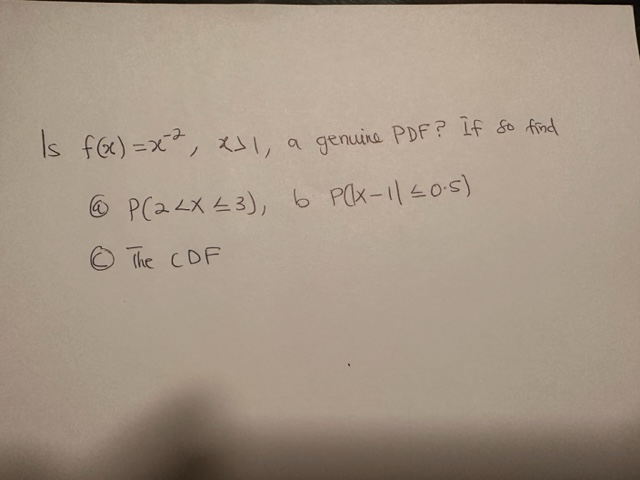 Is f(x) = x⁻², x>1, a genuine PDF? If so find
ⓐ P(2<X≤3), b P(|X-1|≤0.5)
ⓒ The CDF